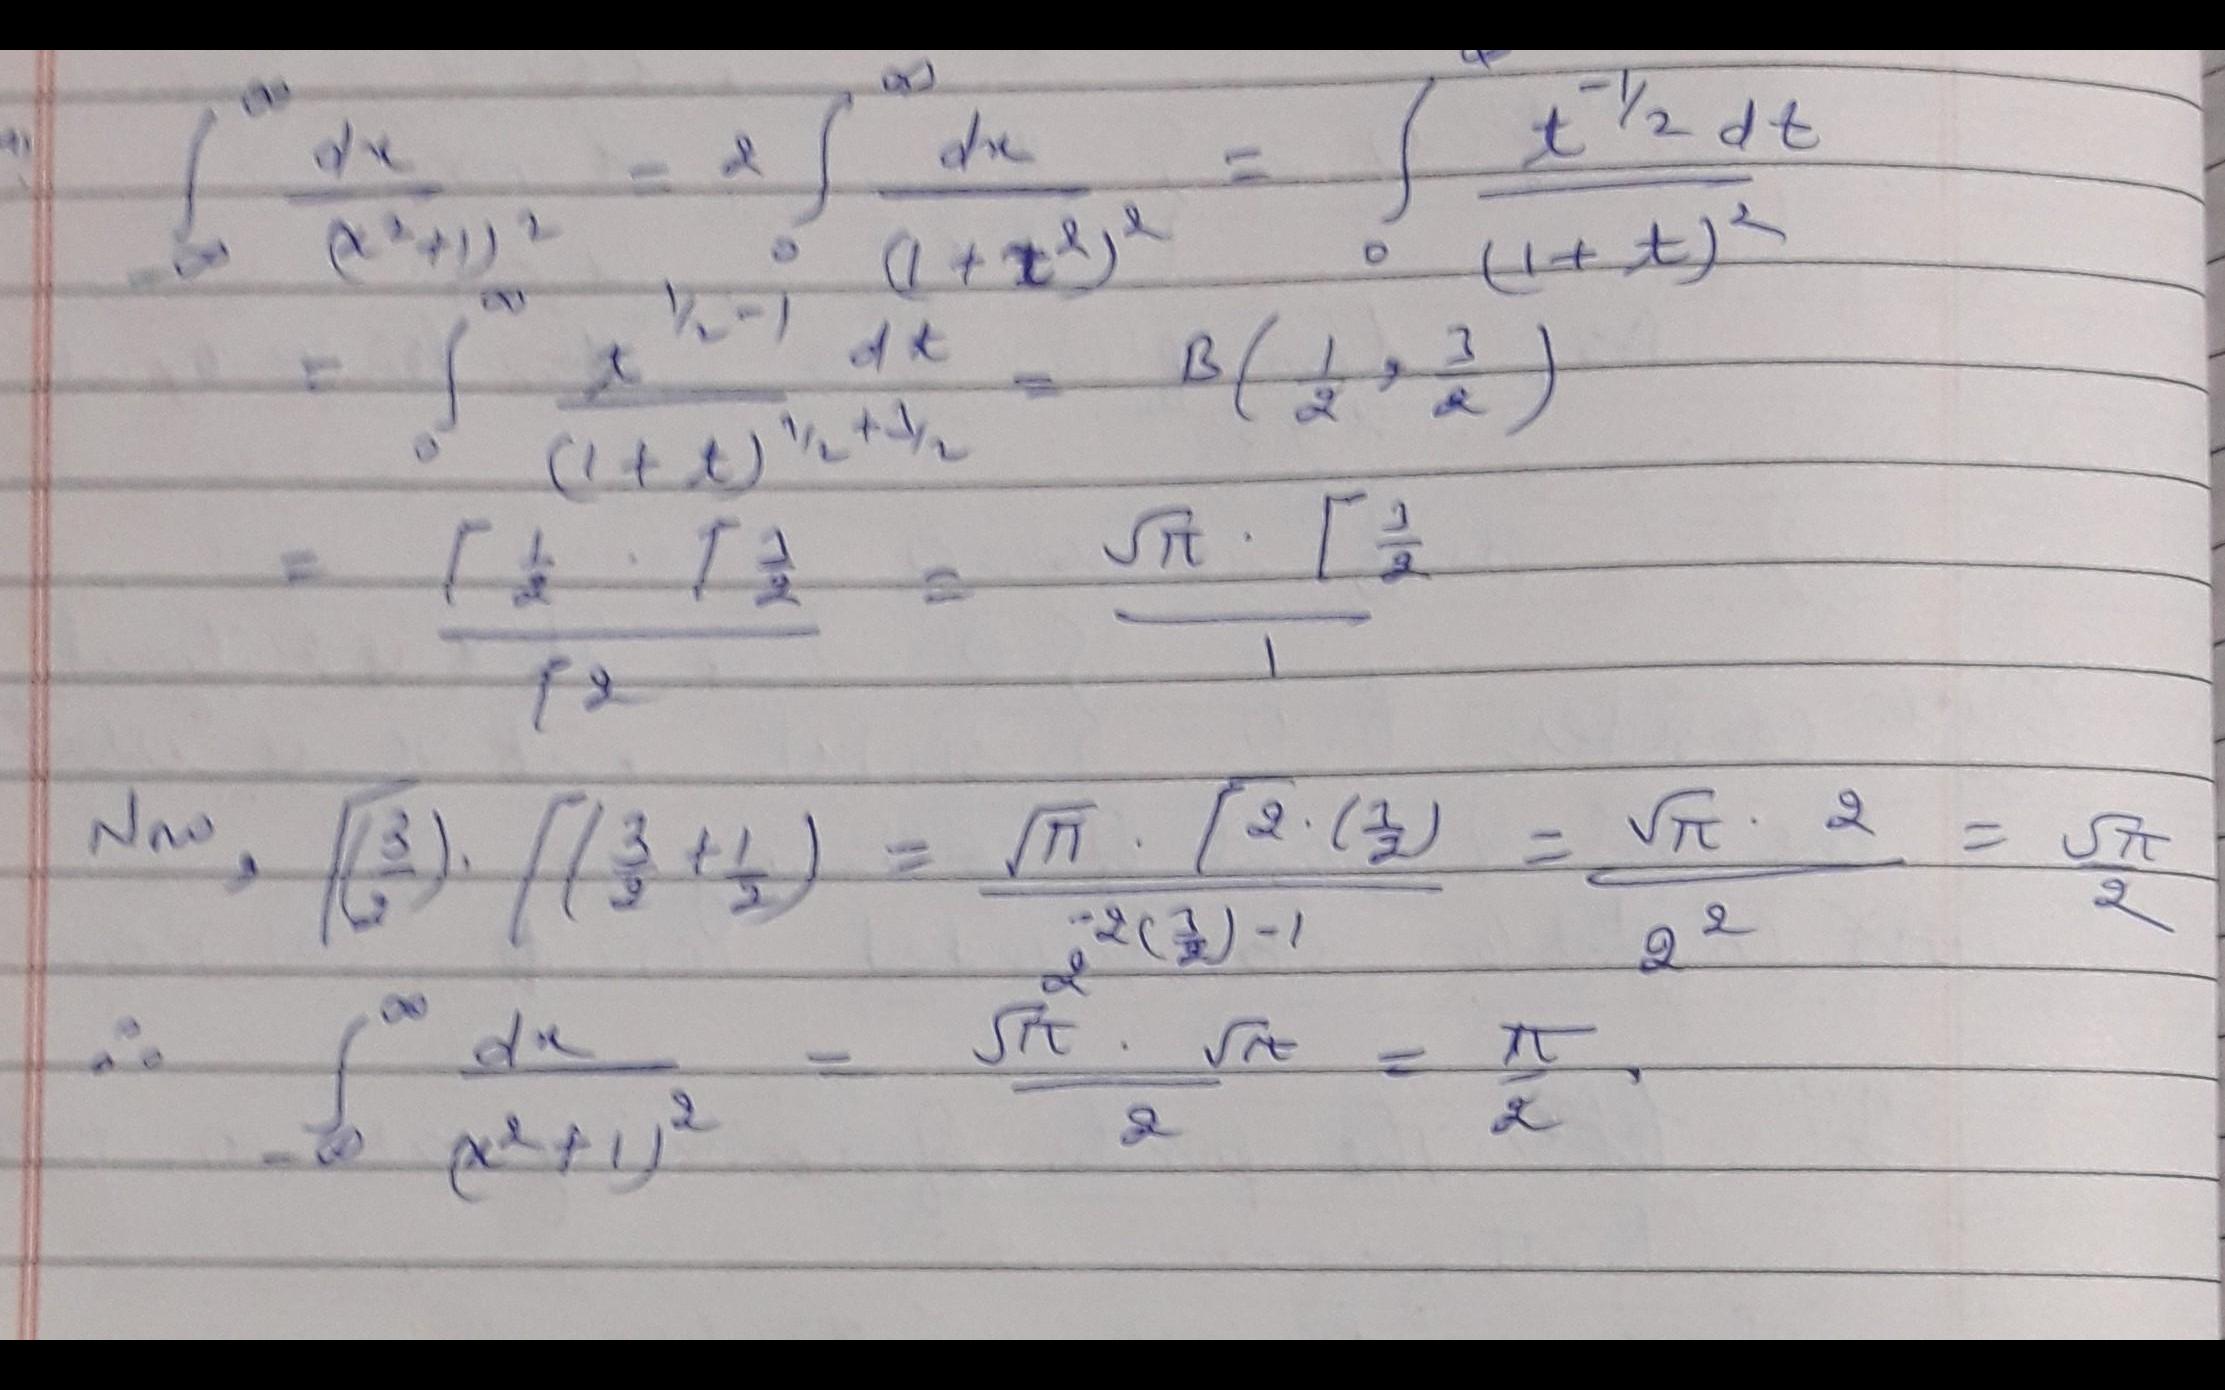 ∫_{-∞}^{∞} dx/(x²+1)² = 2 ∫_0^∞ dx/(1+x²)² = ∫_0 t^{-1/2} dt/(1+t)²
= ∫_0^∞ t^{1/2-1} dt/(1+t)^{1/2+3/2} = B(1/2, 3/2)
= Γ1/2 · Γ3/2 / Γ2 = √π · Γ3/2 / 1
Now, Γ(3/2) · Γ(3/2 + 1/2) = √π · Γ2·(3/2) / 2^{2(3/2)-1} = √π · 2 / 2² = √π/2
∴ ∫_{-∞}^{∞} dx/(x²+1)² = √π · √π / 2 = π/2.